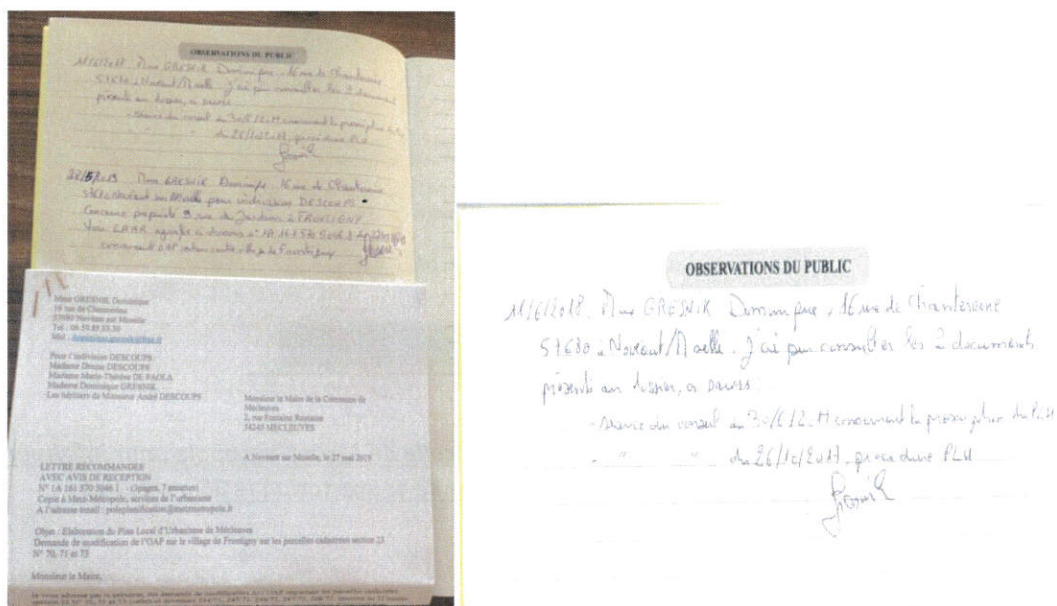 OBSERVATIONS DU PUBLIC
11/6/2018 Mme GRESNIK Dominique, 16 rue de Chantereine
57680 à Novéant/Moselle. J'ai pu consulter les 2 documents
présents au dossier, à savoir
- séance du conseil du 30/6/2 concernant la prescription du PLU
- " " du 26/10/2017, procédure PLU
28/5/2019 Mme GRESNIK Dominique 16 rue de Chantereine
57680 Novéant sur Moselle pour indivision DESCOUPS.
Concerne propriété 9 rue du Jardins à FRONTIGNY
Voir LRAR
concernant OAP Frontigny
Mme GRESNIK Dominique
16 rue de Chantereine
57680 Novéant sur Moselle
Tel : 06 59 89 33 30
Mel :
Pour l'indivision DESCOUPS
Madame Denise DESCOUPS
Madame Marie-Thérèse DE PAOLA
Madame Dominique GRESNIK
Les héritiers de Monsieur André DESCOUPS
Monsieur le Maire de la Commune de
Mécleuves
2, rue Fontaine Romaine
54245 MECLEUVES
A Novéant sur Moselle, le 27 mai 2019
LETTRE RECOMMANDEE
AVEC AVIS DE RECEPTION
N° 1A 161 570 5046 1 - (3pages, 7 annexes)
Copie à Metz-Métropole, services de l'urbanisme
A l'adresse email : poleplanification@metzmetropole.fr
Objet : Elaboration du Plan Local d'Urbanisme de Mécleuves
Demande de modification de l'OAP sur le village de Frontigny sur les parcelles cadastrées section 23
N° 70, 71 et 73
Monsieur le Maire,
OBSERVATIONS DU PUBLIC
11/6/2018. Mme GRESNIK Dominique, 16 rue de Chantereine
57680 à Novéant/Moselle. J'ai pu consulter les 2 documents
présents au dossier, à savoir :
- séance du conseil du 30/6/2 concernant la prescription du PLU
- " " du 26/10/2017, procédure PLU
Gresnik